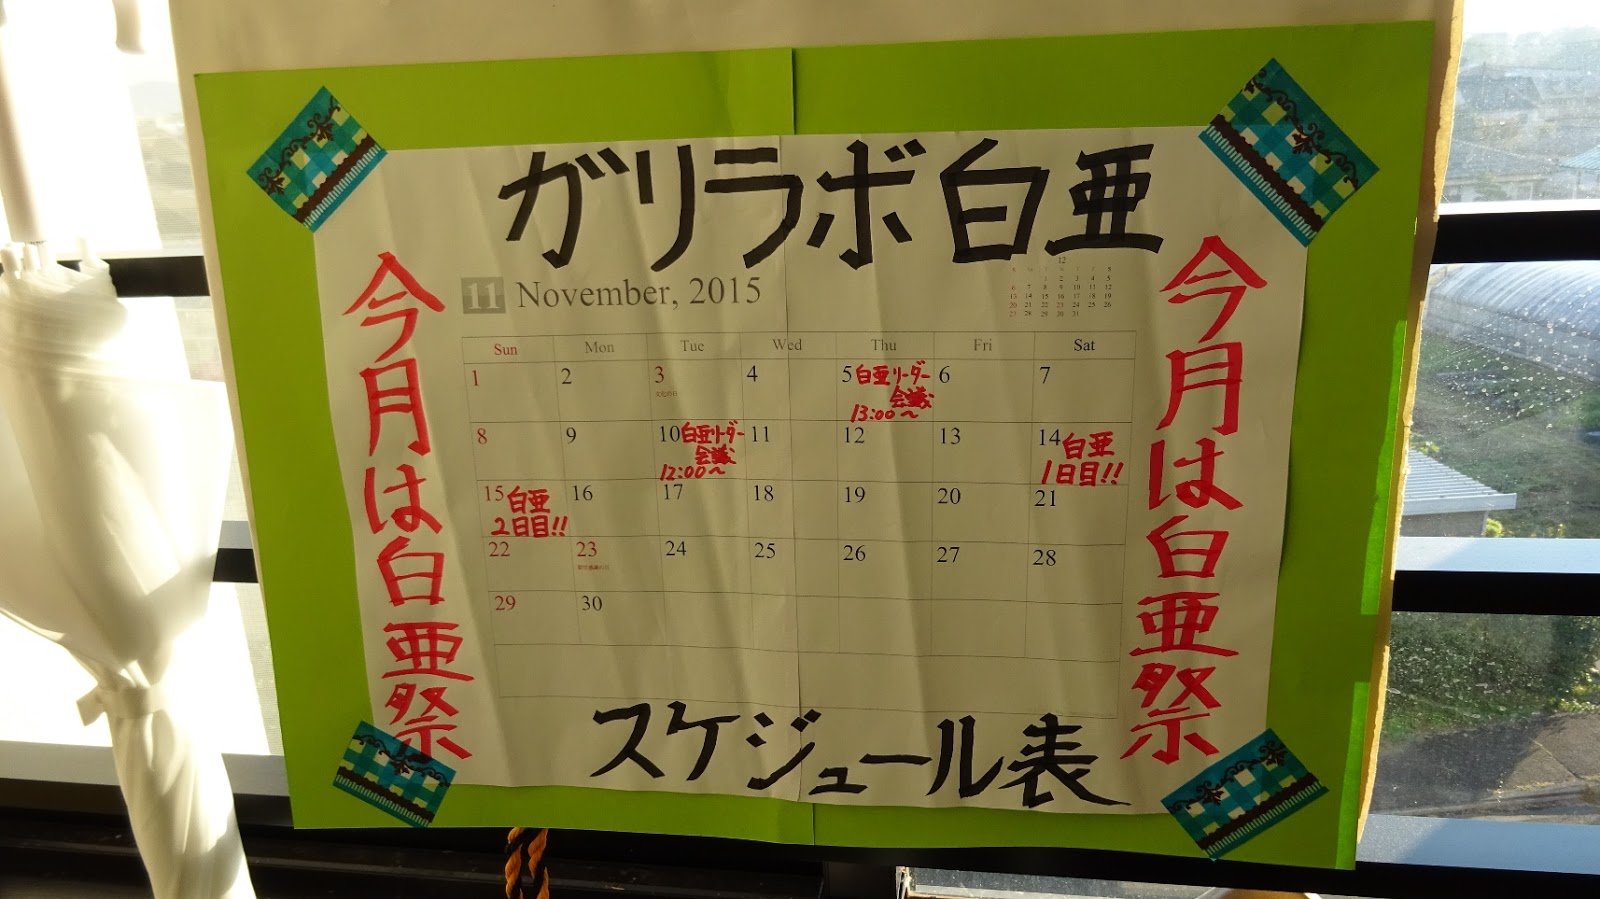 ガリラボ白亜
今月は白亜祭
今月は白亜祭
11 November, 2015
12
Sun Mon Tue Wed Thu Fri Sat
1 2 3 4 5 6 7
文化の日
白亜リーダー
会議
13:00〜
8 9 10 11 12 13 14
白亜リーダー
会議
12:00〜
白亜
1日目!!
15 16 17 18 19 20 21
白亜
2日目!!
22 23 24 25 26 27 28
勤労感謝の日
29 30
スケジュール表